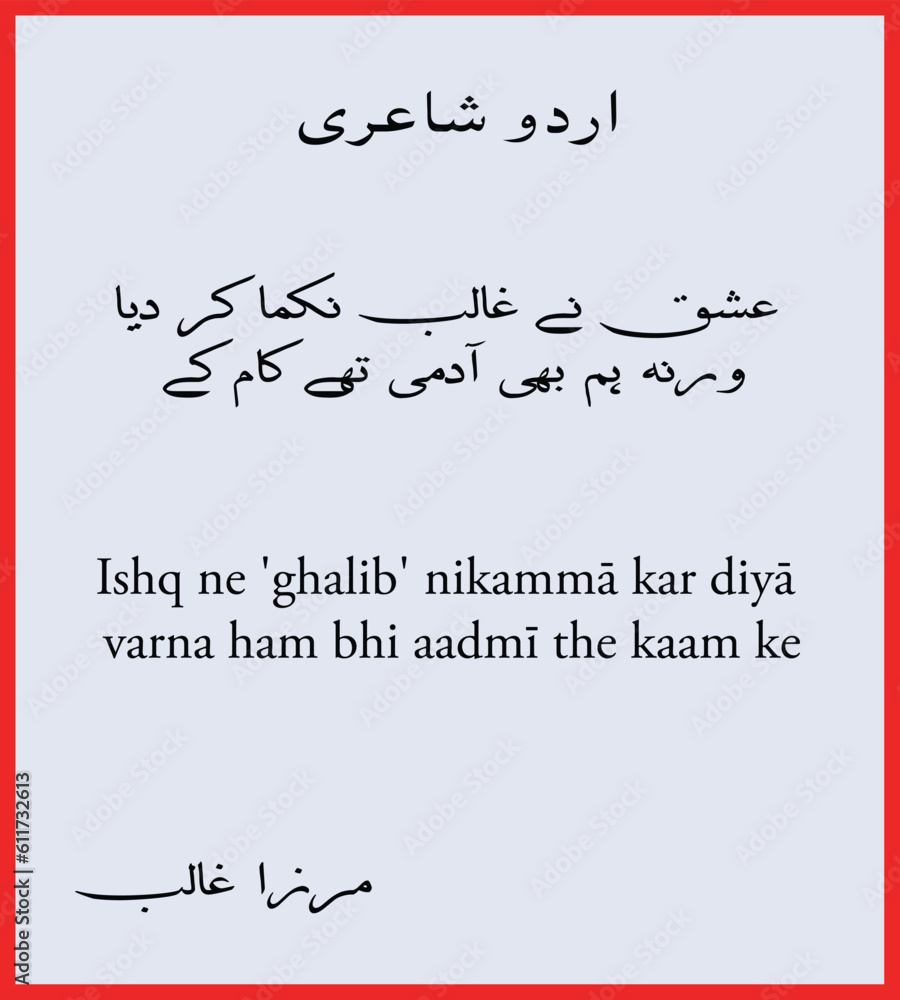 اردو شاعری
عشق نے غالب نکما کر دیا
ورنہ ہم بھی آدمی تھے کام کے
Ishq ne 'ghalib' nikammā kar diyā
varna ham bhi aadmī the kaam ke
مرزا غالب
Adobe Stock | #611732613